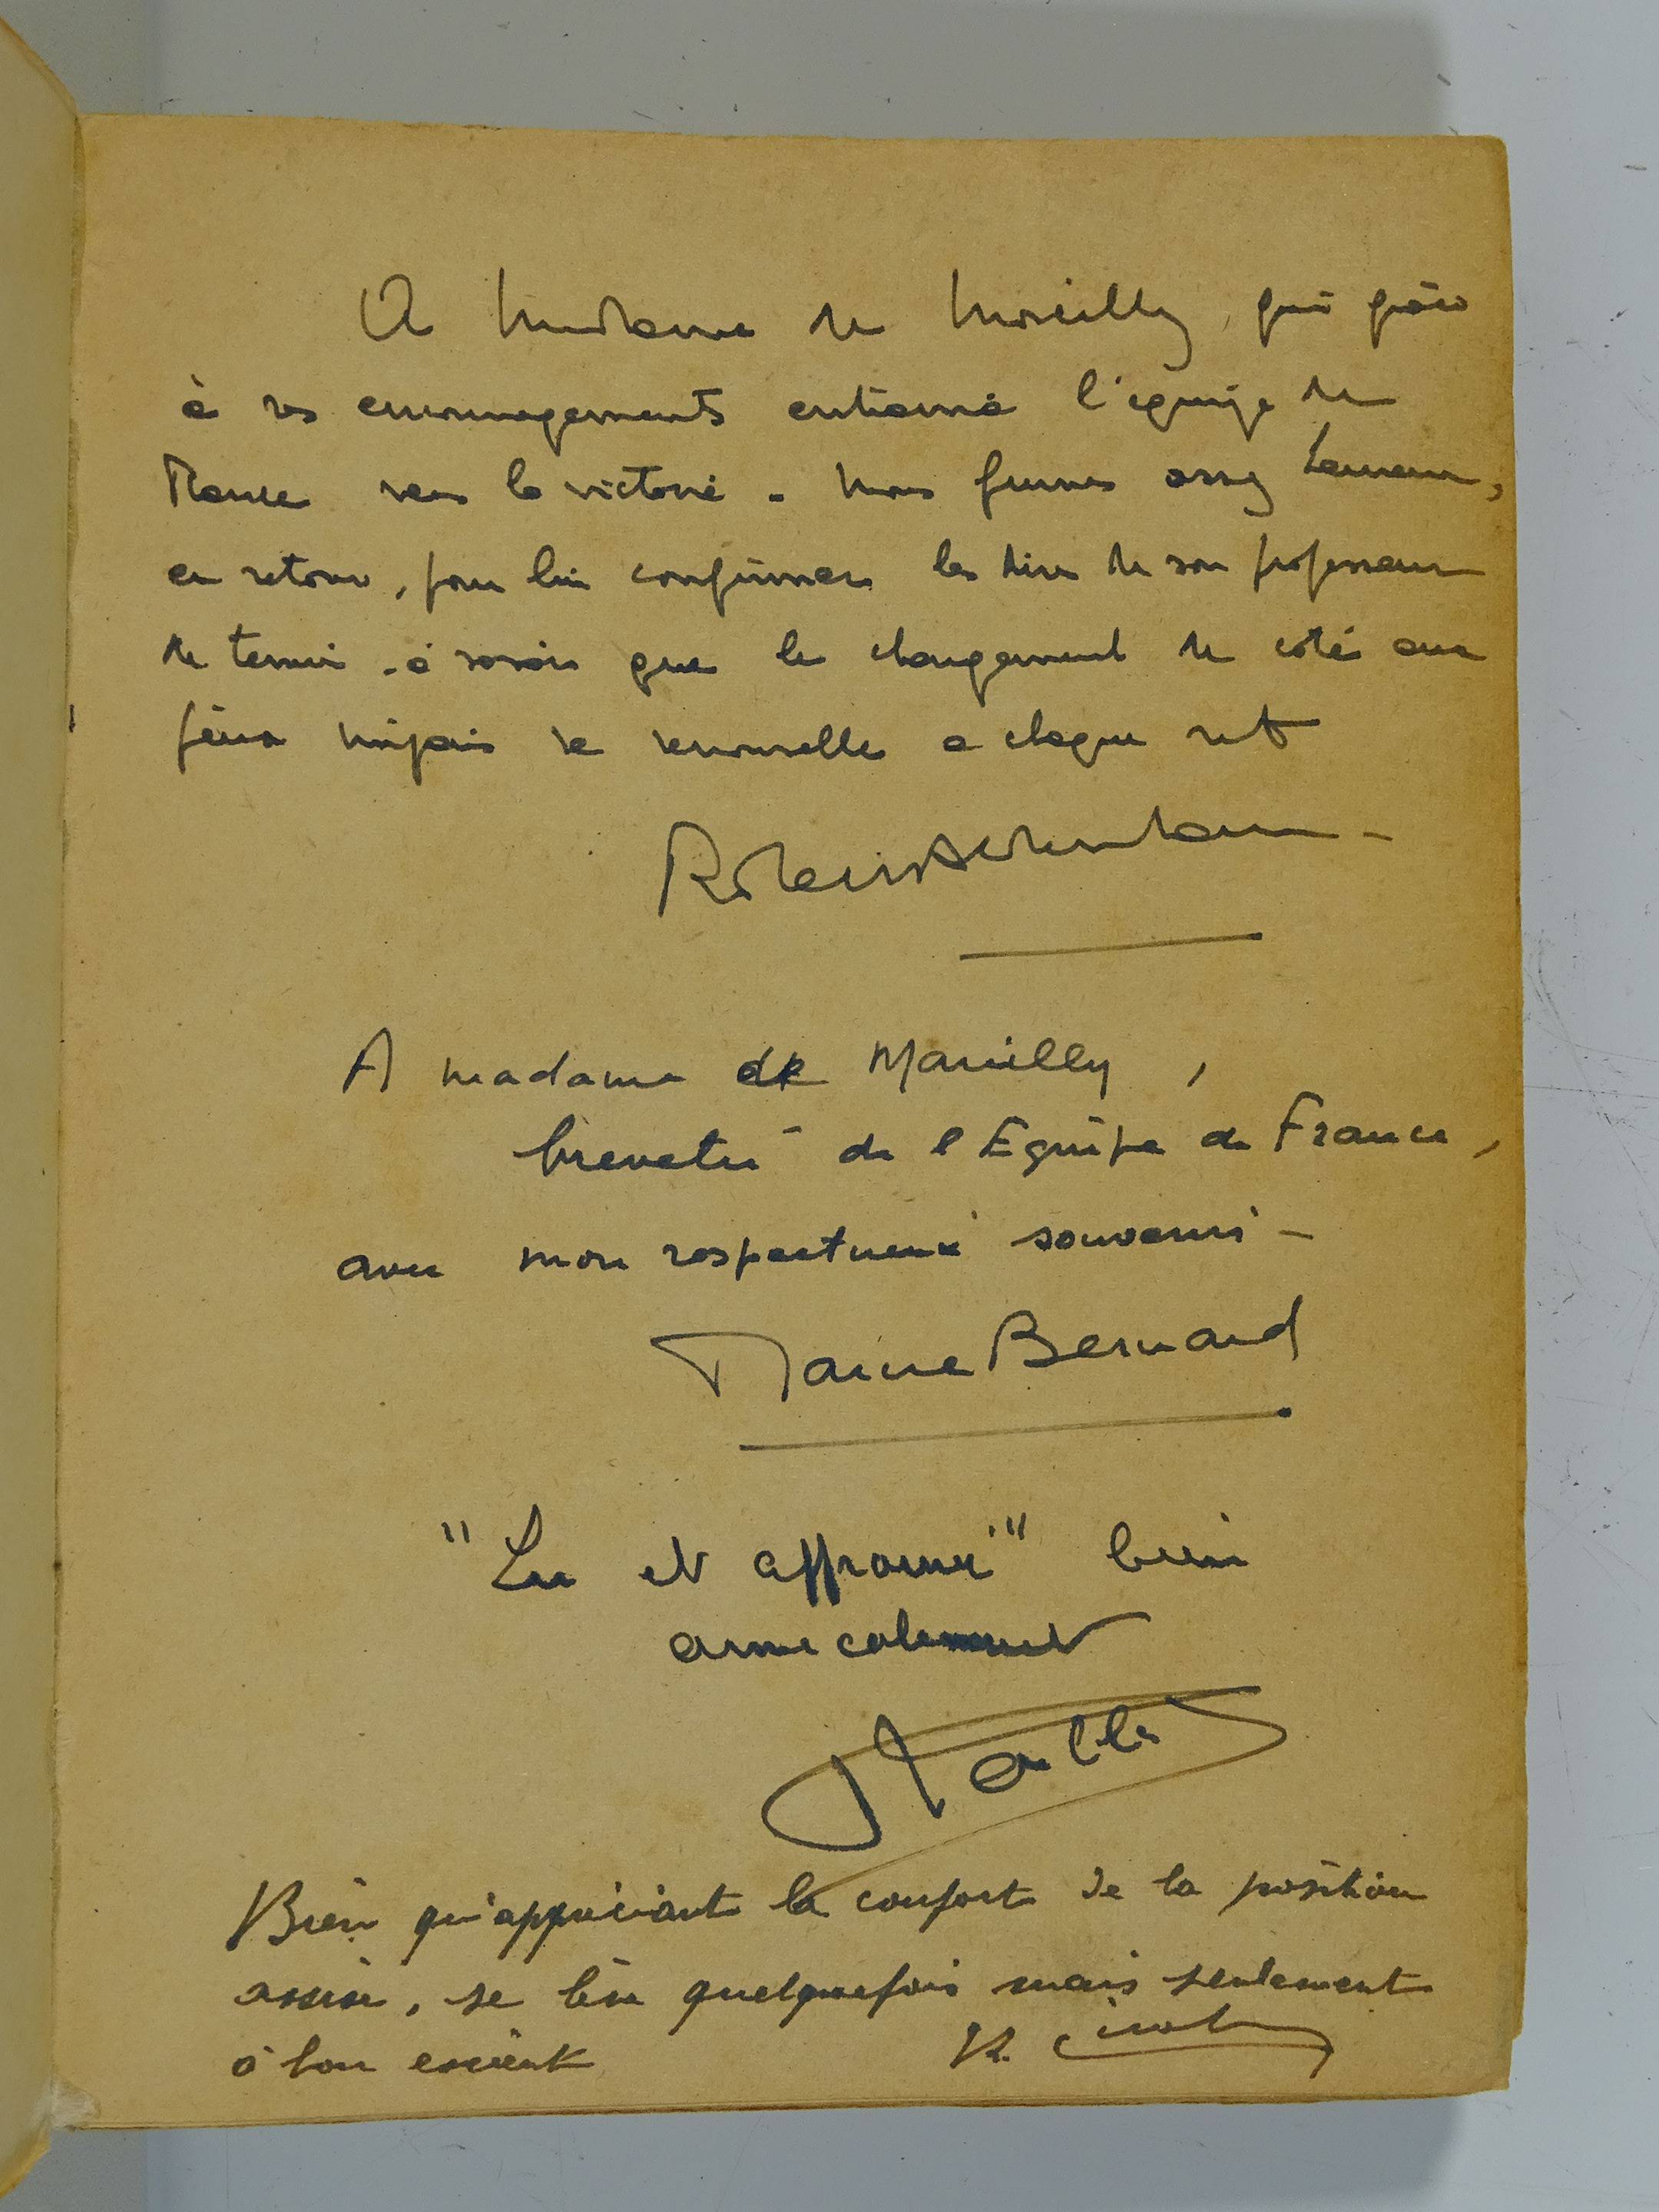 A Madame de Mareilly, qui grâce
à ses encouragements entraina l'équipe de
France vers la victoire. Nous fumes assez heureux,
en retour, pour lui confirmer les dires de son professeur
de tennis. à savoir que le changement de coté aux
jeux impairs se renouvelle a chaque set
Robert Abdesselam
A madame de Mareilly,
brevetée de l'Equipe de France,
avec mon respectueux souvenir -
Marcel Bernard
"Lu et approuvé" bien
amicalement
Bien qu'appréciant le confort de la position
assise, se lève quelquefois mais seulement
à bon escient
R.